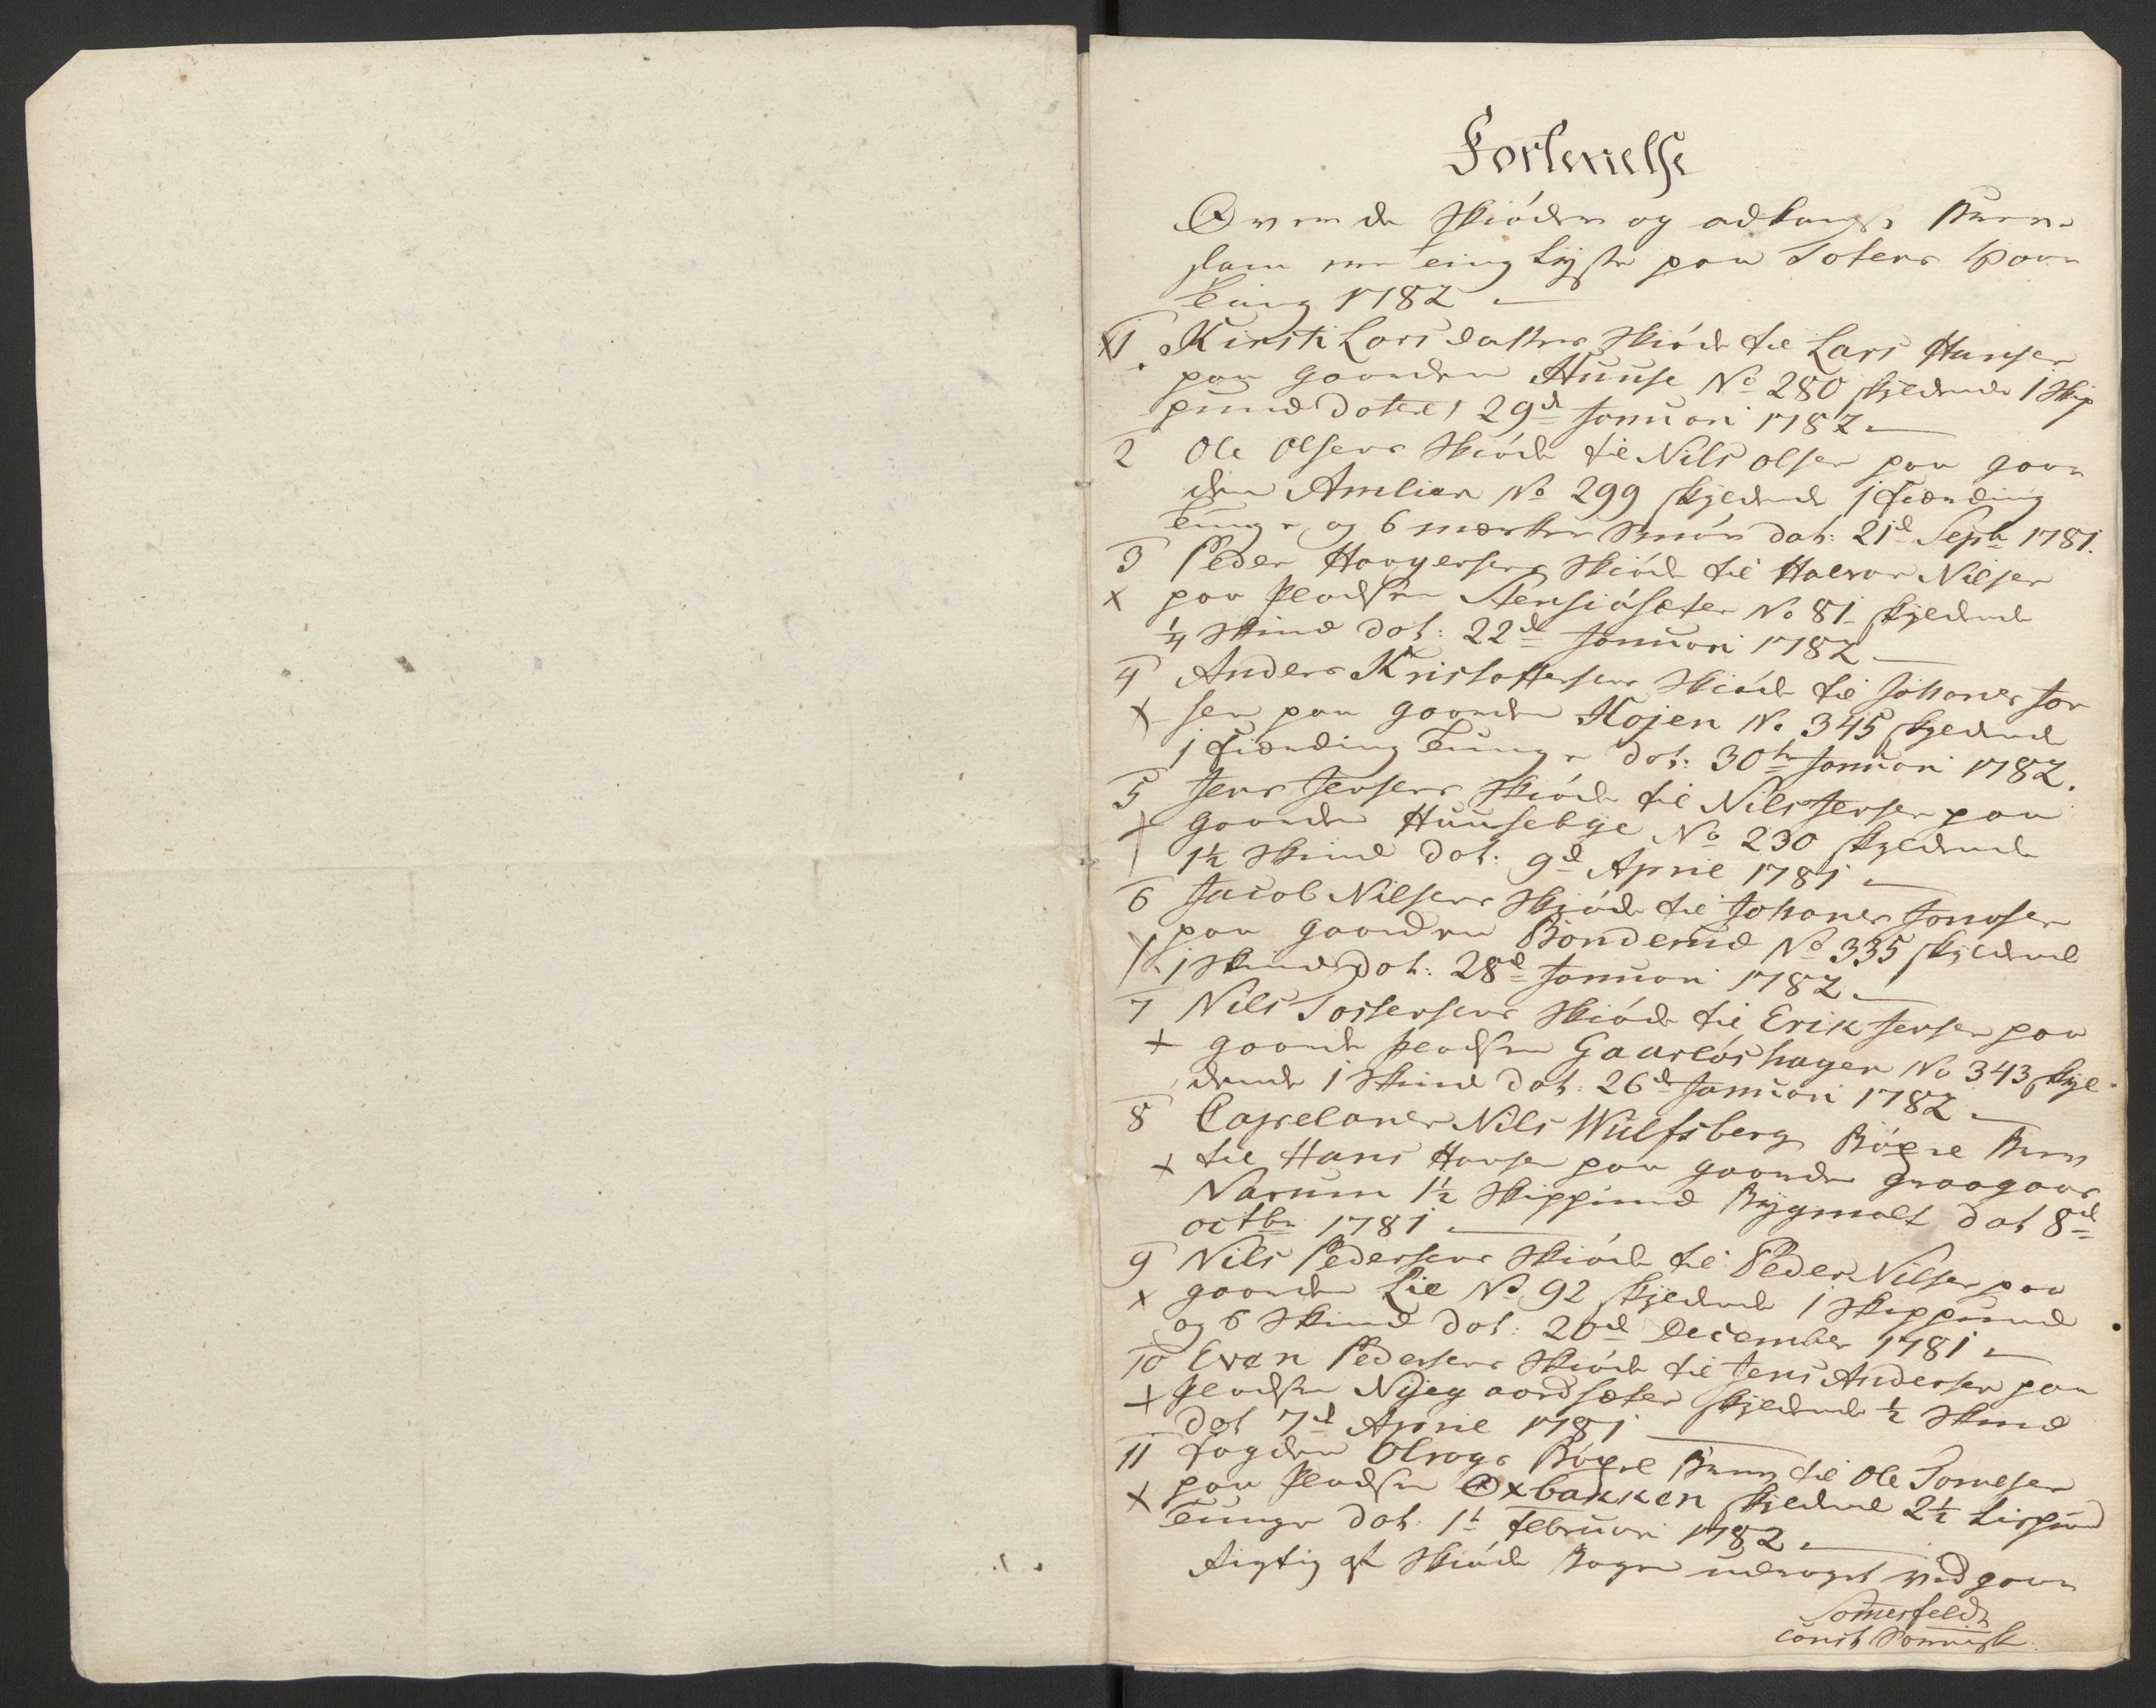 Fortegnelse
Over de Skiöder og adkomst Breve
som er ting lyste paa Totens Vaar
ting 1782
1 Kirsti Lars datters Skiöde til Lars Hansen
paa gaarden Huuse No 280 skyldende 1 Skip
pund Dateret 29d Januari 1782
2 Ole Olsens Skiöde til Nils olsen paa gaar
den Amlien No 299 skyldende 1 fierding
tunge og 6 mærker Smör dat: 21d Sepbr 1781.
3 Peder Haagensens Skiöde til Halvor Nilsen
x paa Pladsen Stensiösæter No 81 skyldende
1/4 Skind dat: 22d Januari 1782
4 Anders Kristoffersens Skiöde til Johanes Jon
x sen paa gaarden Kojen No 345 skyldende
1 fierding tunge dat: 30te Januari 1782.
5 Jens Jensens Skiöde til Nils Jensen paa
x gaarden Huusebye No 230 skyldende
1 1/2 Skind dat: 9d April 1781
6 Jacob Nilsens Skiöde til Johanes Jonasen
x paa gaarden Bonderud No 335 skyldende
1 Skind dat: 28d Januari 1782
7 Nils Torstensens Skiöde til Erik Jensen paa
x gaarde pladsen Gaarlöshagen No 343 skyl
dende 1 Skind dat: 26d Januari 1782
8 Capelanen Nils Wulfsberg Böxel Brev
x til Hans Hansen paa gaarden
Narum 1 1/2 Skippund Bygmalt dat 8d
octbr 1781
9 Nils Pedersens Skiöde til Peder Nilsen paa
x gaarden Lie No 92 skyldende 1 Skippund
og 6 Skind dat: 20d December 1781
10 Even Pedersens Skiöde til Jens Andersen paa
x pladsen Nÿegaardsæter skyldende 1/2 Skind
dat 7d April 1781
11 fogden Olrogs Böxel Brev til Ole Tomesen
x paa Pladsen Oxbakken skyldende 2 1/2 Lispund
tunge dat: 1t februari 1782
Rigtig af Skiöde Bogen udraget Vedgaar
Somerfeldt
const Sorenskr: